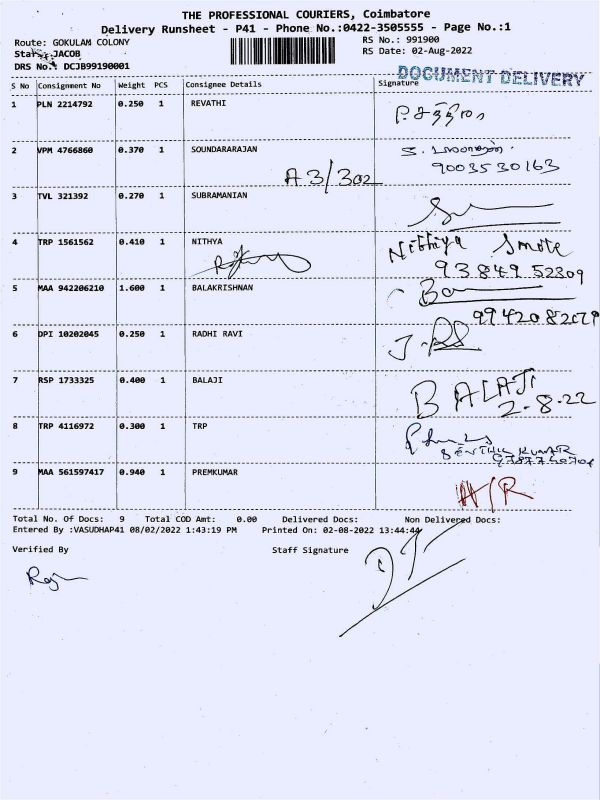 THE PROFESSIONAL COURIERS, Coimbatore
Delivery Runsheet - P41 - Phone No.:0422-3505555 - Page No.:1
Route: GOKULAM COLONY RS No.: 991900
Staff: JACOB RS Date: 02-Aug-2022
DRS No.: DCJB99190001
DOCUMENT DELIVERY
S No Consignment No Weight PCS Consignee Details Signature
1 PLN 2214792 0.250 1 REVATHI
2 VPM 4766860 0.370 1 SOUNDARARAJAN
9003530163
A3/302
3 TVL 321392 0.270 1 SUBRAMANIAN
4 TRP 1561562 0.410 1 NITHYA Nithiya
93849 52309
5 MAA 942206210 1.600 1 BALAKRISHNAN
6 DPI 10202045 0.250 1 RADHI RAVI
7 RSP 1733325 0.400 1 BALAJI BALAJI
2-8-22
8 TRP 4116972 0.300 1 TRP
SENTHIL KUMAR
9 MAA 561597417 0.940 1 PREMKUMAR
N/R
Total No. Of Docs: 9 Total COD Amt: 0.00 Delivered Docs: Non Delivered Docs:
Entered By :VASUDHAP41 08/02/2022 1:43:19 PM Printed On: 02-08-2022 13:44:44
Verified By Staff Signature